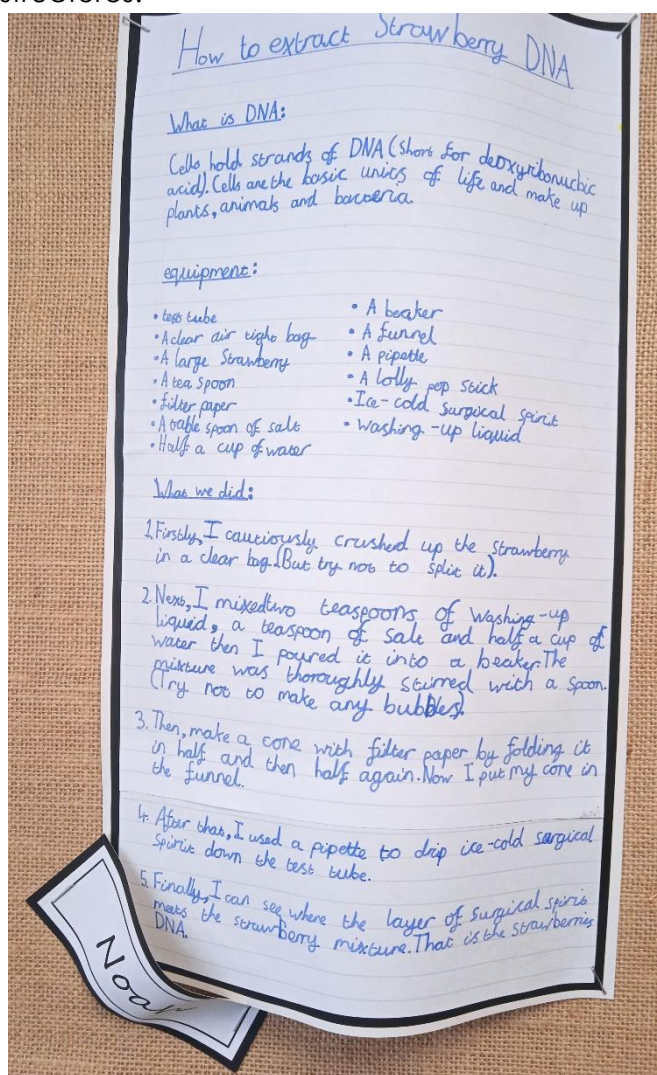 How to extract Strawberry DNA
What is DNA:
Cells hold strands of DNA (short for deoxyribonucbic
acid). Cells are the basic units of life and make up
plants, animals and bacteria
equipment:
• test tube
• A clear air tight bag
• A large Strawberry
• A tea spoon
• filter paper
• A table spoon of salt
• Half a cup of water
• A beaker
• A funnel
• A pipette
• A lolly pop stick
• Ice-cold surgical spirit
• washing-up liquid
What we did:
1. Firstly, I cautiously crushed up the strawberry
in a clear bag. (But try not to split it).
2. Next, I mixed two teaspoons of washing-up
liquid, a teaspoon of salt and half a cup of
water then I poured it into a beaker. The
mixture was thoroughly stirred with a spoon.
(Try not to make any bubbles).
3. Then, make a cone with filter paper by folding it
in half and then half again. Now I put my cone in
the funnel.
4. After that, I used a pipette to drip ice-cold surgical
spirit down the test tube.
5. Finally, I can see where the layer of surgical spiris
meets the strawberry mixture. That is the strawberries
DNA.
Noah